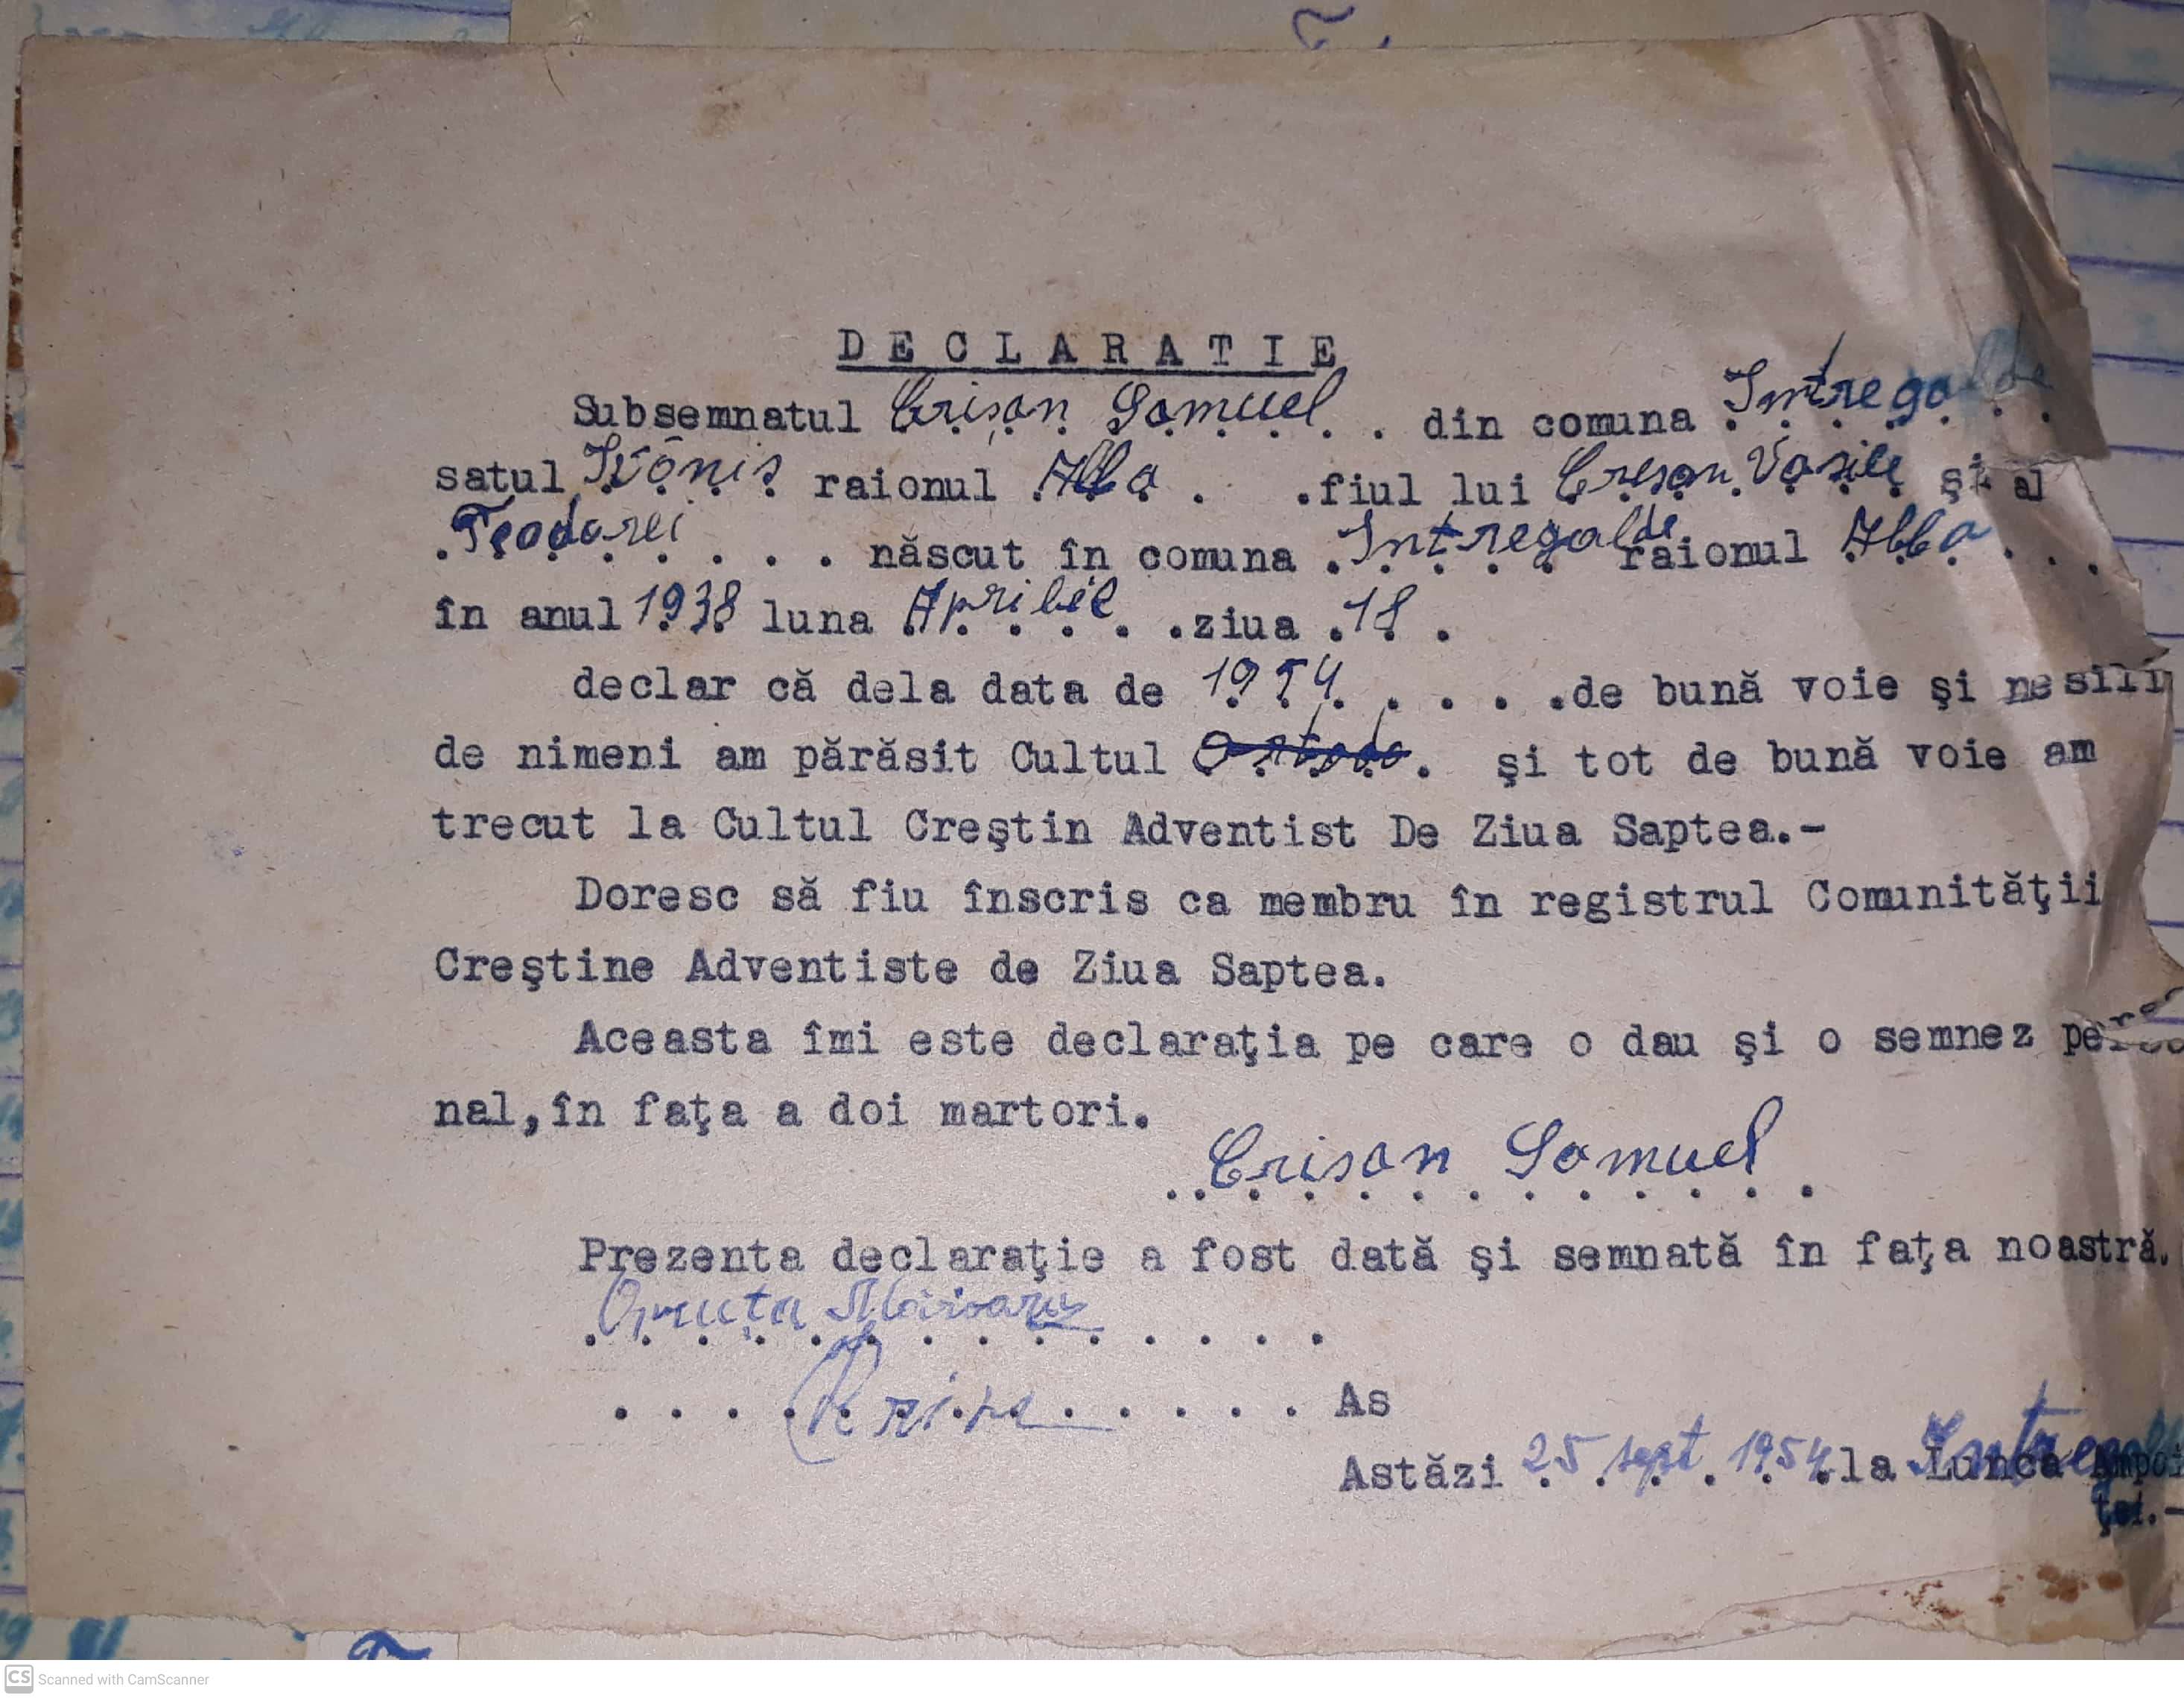 DECLARATIE
Subsemnatul Crișan Samuel . . din comuna Intregalde
satul Ivăniș raionul Alba . .fiul lui Crișan Vasile și al
Teodorei . . . născut în comuna Intregalde raionul Alba . . .
în anul 1938 luna Aprilie . .ziua 18 .
declar că dela data de 1954 . . . .de bună voie şi nesili
de nimeni am părăsit Cultul . şi tot de bună voie am
trecut la Cultul Creştin Adventist De Ziua Saptea.-
Doresc să fiu înscris ca membru în registrul Comunităţii
Creştine Adventiste de Ziua Saptea.
Aceasta îmi este declaraţia pe care o dau şi o semnez perso
nal,în faţa a doi martori.
Crisan Samuel
Prezenta declaraţie a fost dată şi semnată în faţa noastră.
As
Astăzi 25 sept. 1954 la Lunca Ampoi
ţei.-
CS Scanned with CamScanner